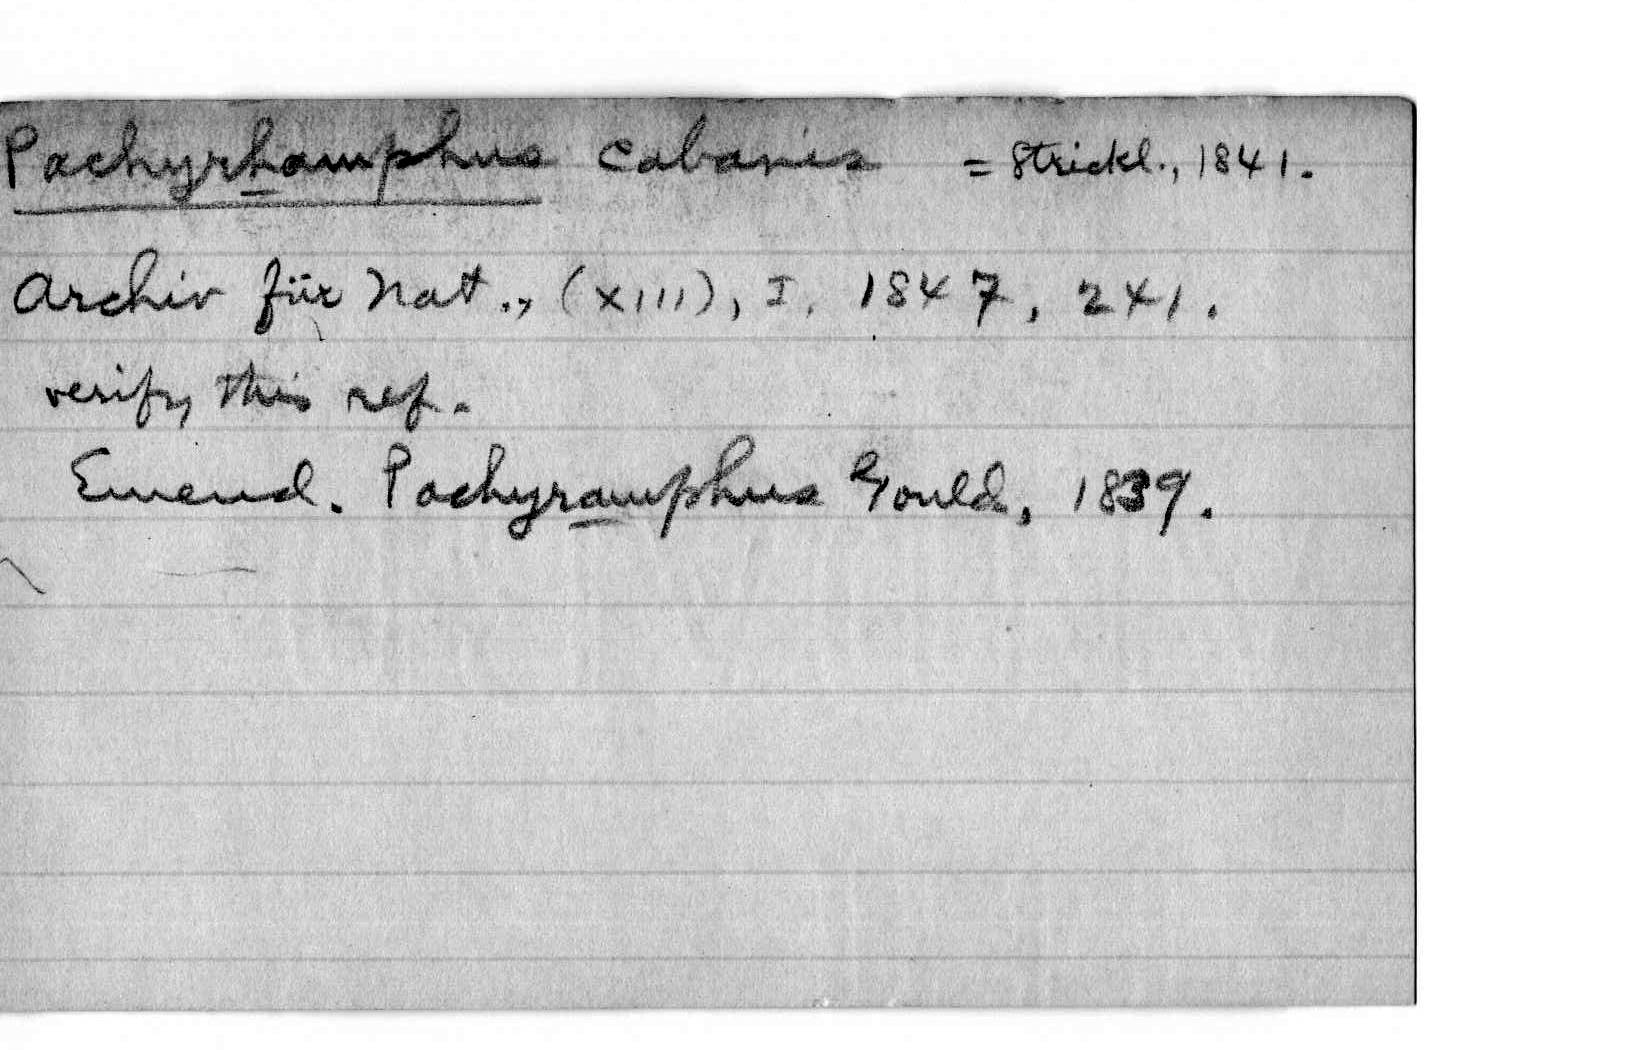 Pachyrhamphus Cabanis = Strickl., 1841.
Archiv für Nat., (XIII), I, 1847, 241.
verify this ref.
Emend. Pachyramphus Gould, 1839.